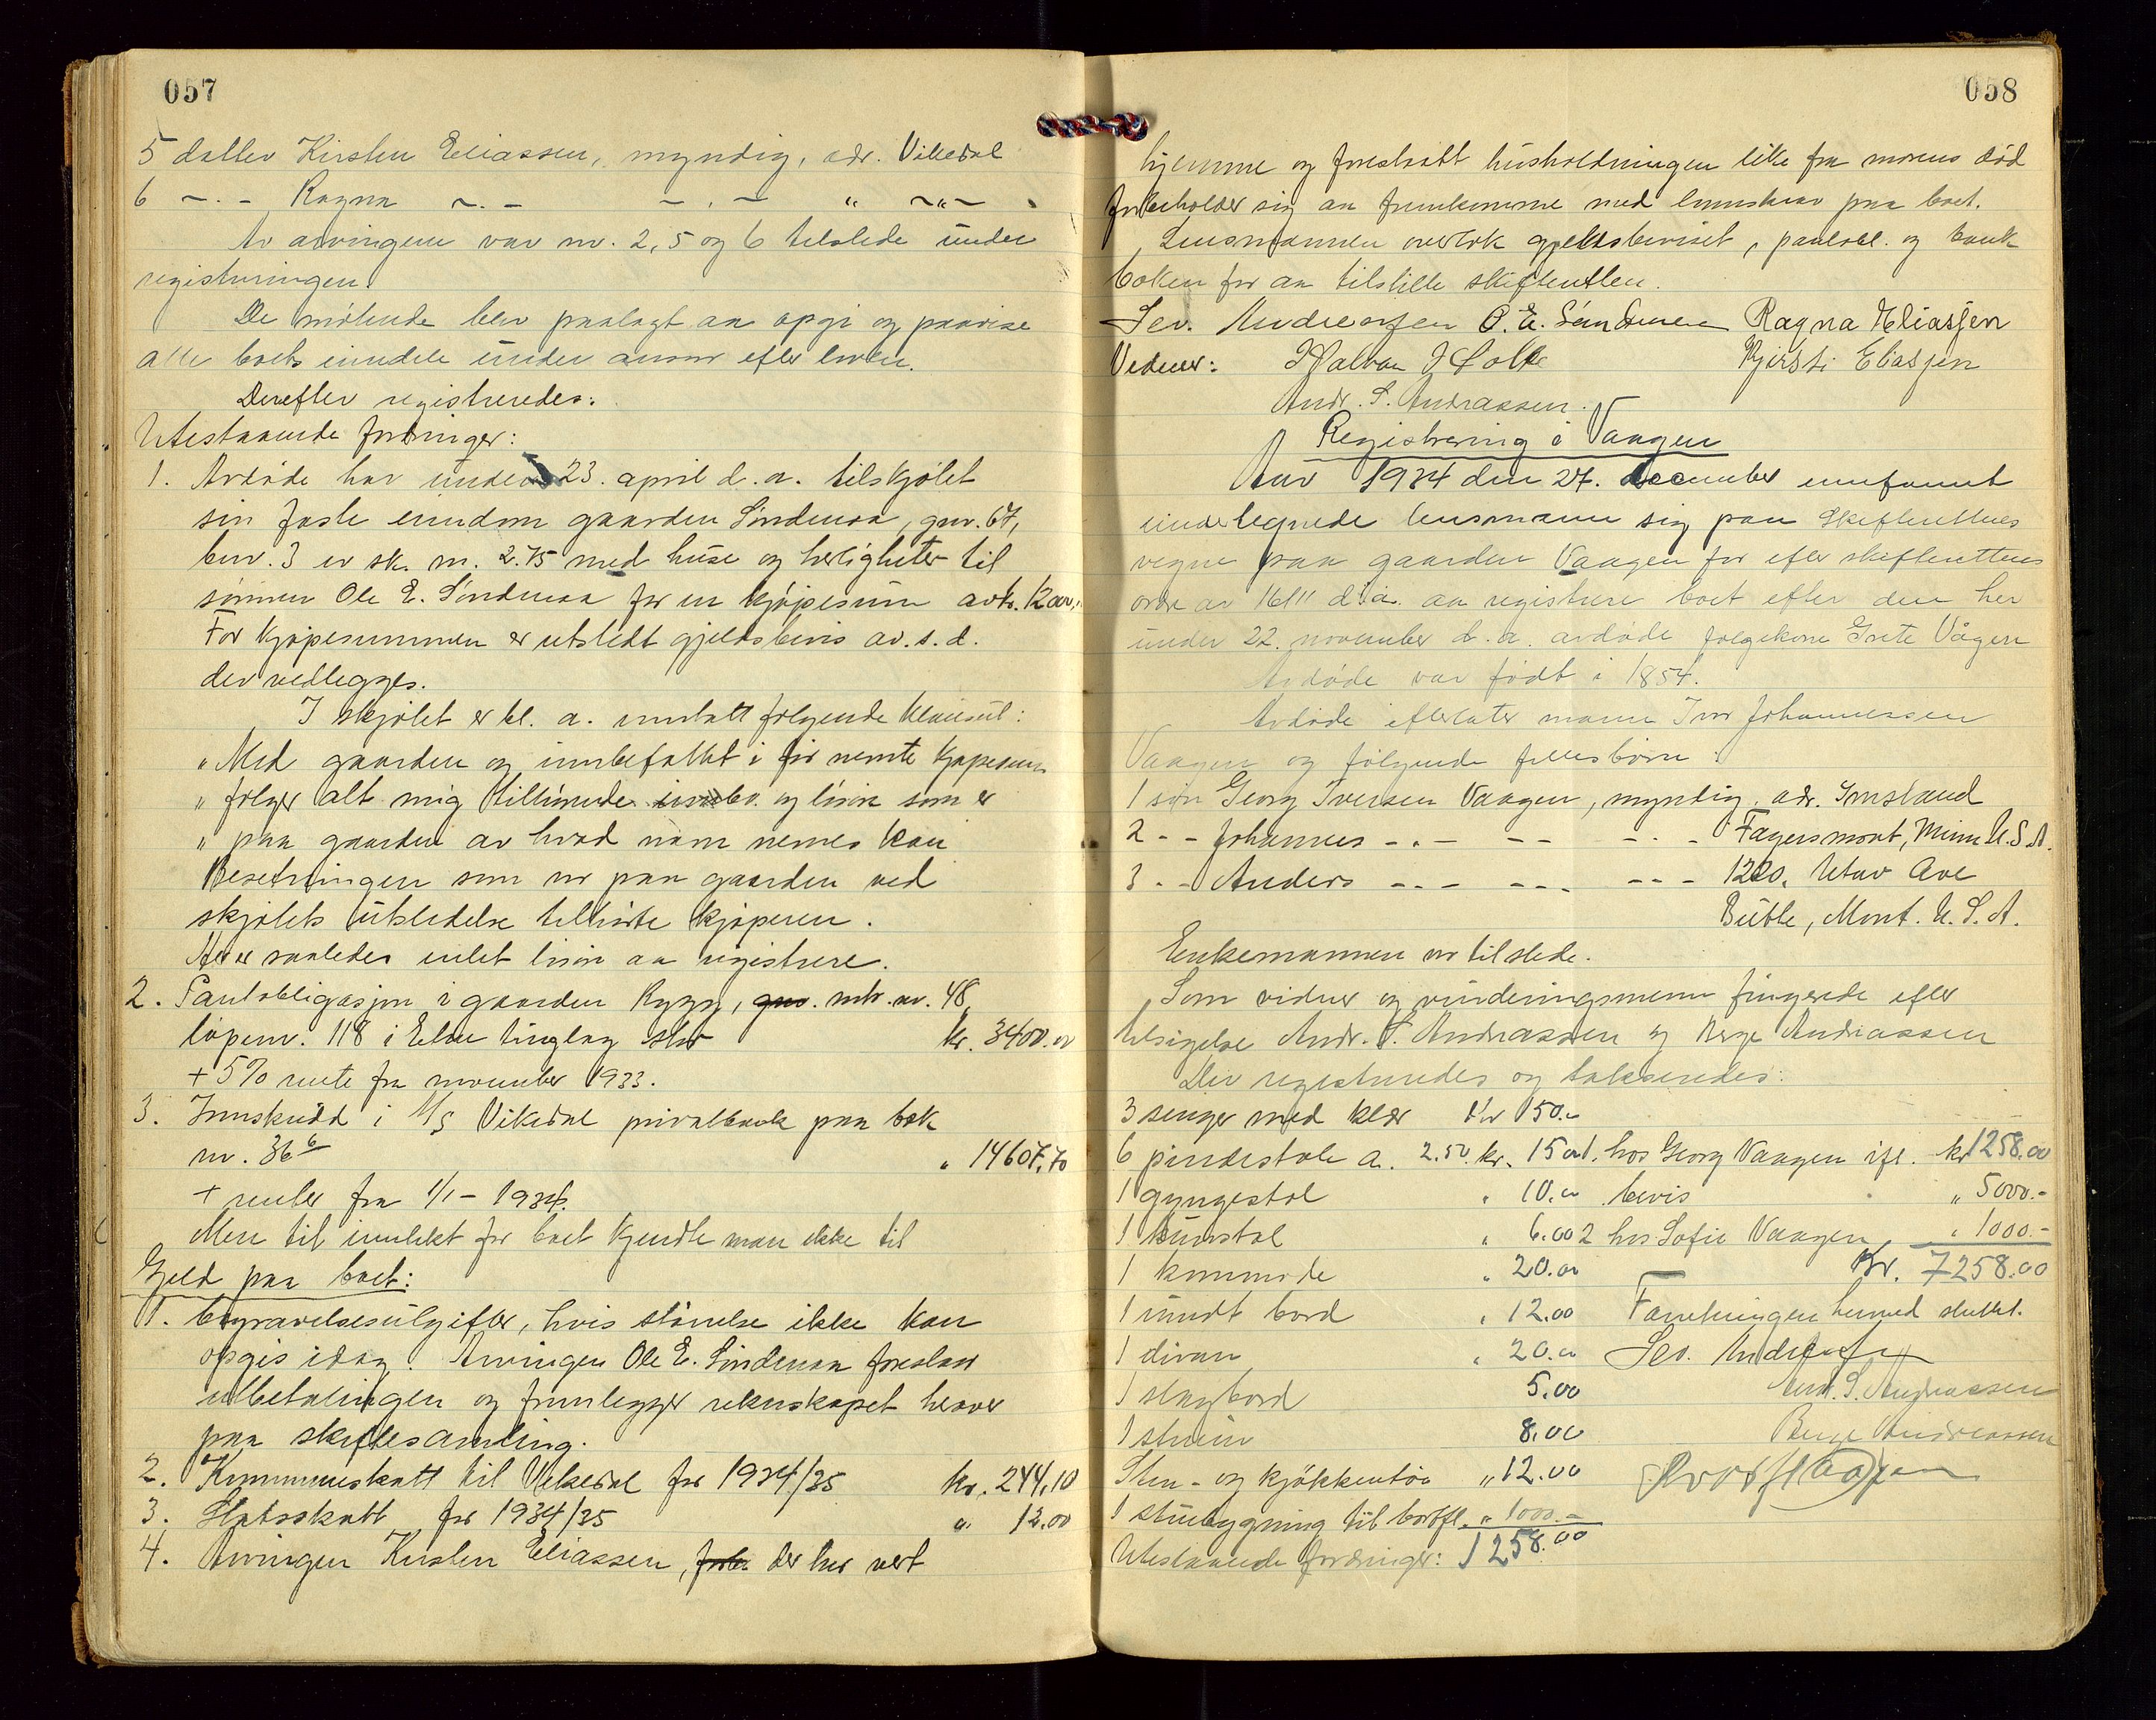 057
5 datter Kirsten Eliassen, myndig, adr. Vikedal
6 -.- Ragna -.- -.- " -"-
Av arvingene var nr. 2, 5 og 6 tilstede under
registreringen.
De møtende blev paalagt aa opgi og paavise
alle boets eiendele under ansvar efter loven.
Derefter registreredes:
Utestaaende fordringer:
1. Avdøde har under 23. april d. a. tilskjøtet
sin faste eiendom gaarden Søndenaa, gnr. 67,
bnr. 3 av sk. m. 2.75 med huse og herligheter til
sønnen Ole E. Søndenaa for en kjøpesum av kr.
For kjøpesummen er utstedt gjeldsbevis av s. d.
der vedlegges.
I skjøtet er bl. a. inntatt følgende klausul:
"Med gaarden og innbefattet i før nevnte kjøpesum
"følger alt mig tilhørende innbo og løsøre som er
"paa gaarden av hvad navn nevnes kan
Besetningen som var paa gaarden ved
skjøtets utstedelse tilhørte kjøperen.
Her er saaledes intet løsøre aa registrere.
2. Pantobligasjon i gaarden Rygg, gnr. mtr. nr. 48,
løpenr. 118 i Elne tinglag stor kr. 3400.00
+ 5% rente fra november 1933.
3. Innskudd i A/S Vikedal privatbank paa bok
nr. 366 " 14607,70
+ renter fra 1/1 - 1934.
Mere til inntekt for boet kjendte man ikke til
Gjeld paa boet:
1. begravelsesutgifter, hvis størrelse ikke kan
opgis idag. Arvingen Ole E. Søndenaa foreslaar
utbetalingen og fremlegger rekneskapet herover
paa skiftesamling.
2. Kommuneskatt til Vikedal for 1934/35 kr. 244,10
3. Statsskatt for 1934/35 " 12.00
4. Arvingen Kirsten Eliassen, der har vært
058
hjemme og forestaatt husholdningen like fra morens død
forbeholder sig aa fremkomme med lønnskrav paa boet.
Lensmannen overtok gjeldsbeviset, pantobl. og bank
boken for aa tilstille skifteretten.
Sev. Andreassen O. E. Søndenaa Ragna Eliassen
Vidner: Halvor Kjirsti Eliassen
Andr. S. Andreassen.
Registrering i Vaagen
Aar 1934 den 27. december innfannt
undertegnede lensmann sig paa skifterettens
vegne paa gaarden Vaagen for efter skifterettens
ordre av 16/11 d. a. aa registrere boet efter den her
under 22. november d. a. avdøde følgekone Grete Vågen
Avdøde var født i 1854.
Avdøde efterlater mann Iver Johannessen
Vaagen og følgende fellesbørn:
1 søn Georg Iversen Vaagen, myndig, adr. Imsland
2 - - Johannes -.- -- -.- Fagersmont, Minn U.S.A.
3 - - Anders --- --- --- 1220. Utav Ave
Butte, Mont. U.S.A.
Enkemannen var tilstede.
Som vidner og vurderingsmenn fungerede efter
tilsigelse Andr. S. Andreassen og Berge Andreassen
Der registreredes og takseredes:
3 senger med klær kr 150.-
6 pindestole a. 2.50. kr. 15.00 1. hos Georg Vaagen ifl. kr 1258.00
1 gyngestol " 10.00 bevis " 5000.-
1 " 6.00 2 hos Sofie Vaagen " 1000.-
1 kommode " 20.00 Kr. 7258.00
1 rundt bord " 12.00 Forretningen hermed sluttet.
1 divan " 20.00 Sev. Andreassen
1 slagbord 5.00 Andr. S. Andreassen
1 8.00 Berge Andreassen
Sten- og kjøkkentøi " 12.00
1 stuebygning til bortfl. " 1000.-
Utestaaende fordringer: 1258.00